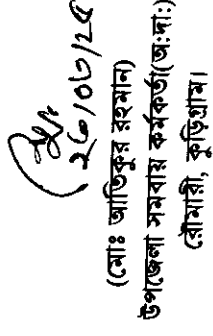 ২৬/০৩/২৫
(মোঃ আতিকুর রহমান)
উপজেলা সমবায় কর্মকর্তা(অ:দা:)
রৌমারী, কুড়িগ্রাম।